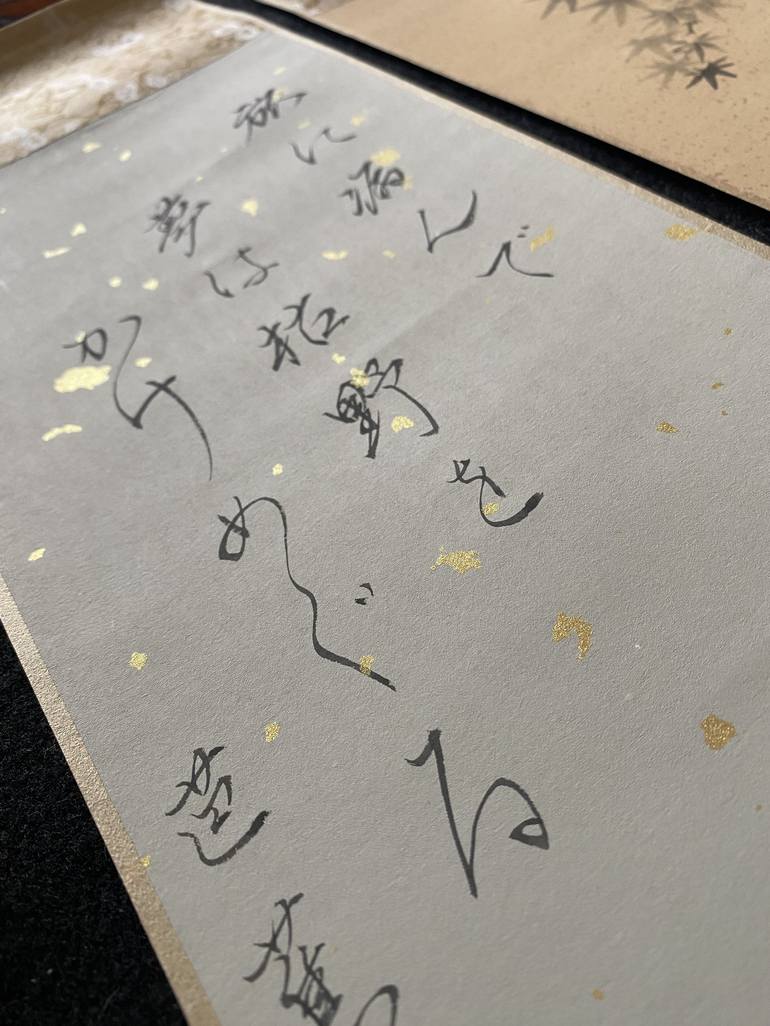 旅に病んで
夢は枯野を
かけめぐる
芭蕉